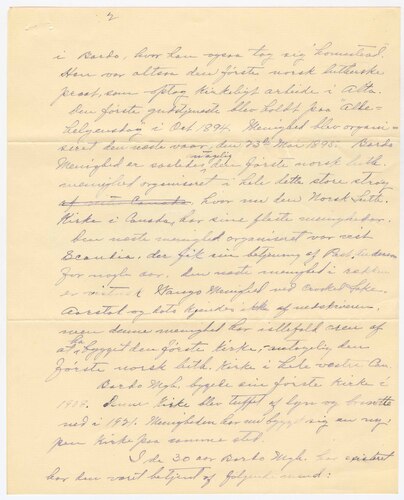 2
i Bardo, hvor han ogsaa tog sig "homestead."
Han var altsaa den første norsk lutherske
prest, som optog kirkeligt arbeide i Alta.
Den første gudstjeneste blev holdt paa "Alle-
helgensdag" i Oct. 1894. Menighed blev organi-
seret den næste vaar, den 23de Mai 1895. Bardo
Menighed er saaledes muligens den første norsk luth.
menighed organiseret i hele dette store strøg
af vest Canada, hvor nu den Norsk Luth.
Kirke i Canada, har sine fleste menigheder.
Den næste menighed organiseret var vist
Scandia, der fik sin betjening af Past.
for nogle aar. Den næste menighed i rækken
er vist Wangs Menighed ved Crooked Lake.
Aarstal og dato kjendes ikke af nedskriveren,
men denne menighed har i tilfeld æren af
at ha bygget den første kirke, antagelig den
første norsk luth. kirke i hele vestre Can.
Bardo Mgh. bygede sin første Kirke i
Denne kirke blev truffet af lyn og brændte
ned i 1921. Menigheden har nu bygget sig en ny
pen Kirke paa samme sted.
I de 30 aar Bardo Mgh. har existeret
har den været betjent af følgende mænd: